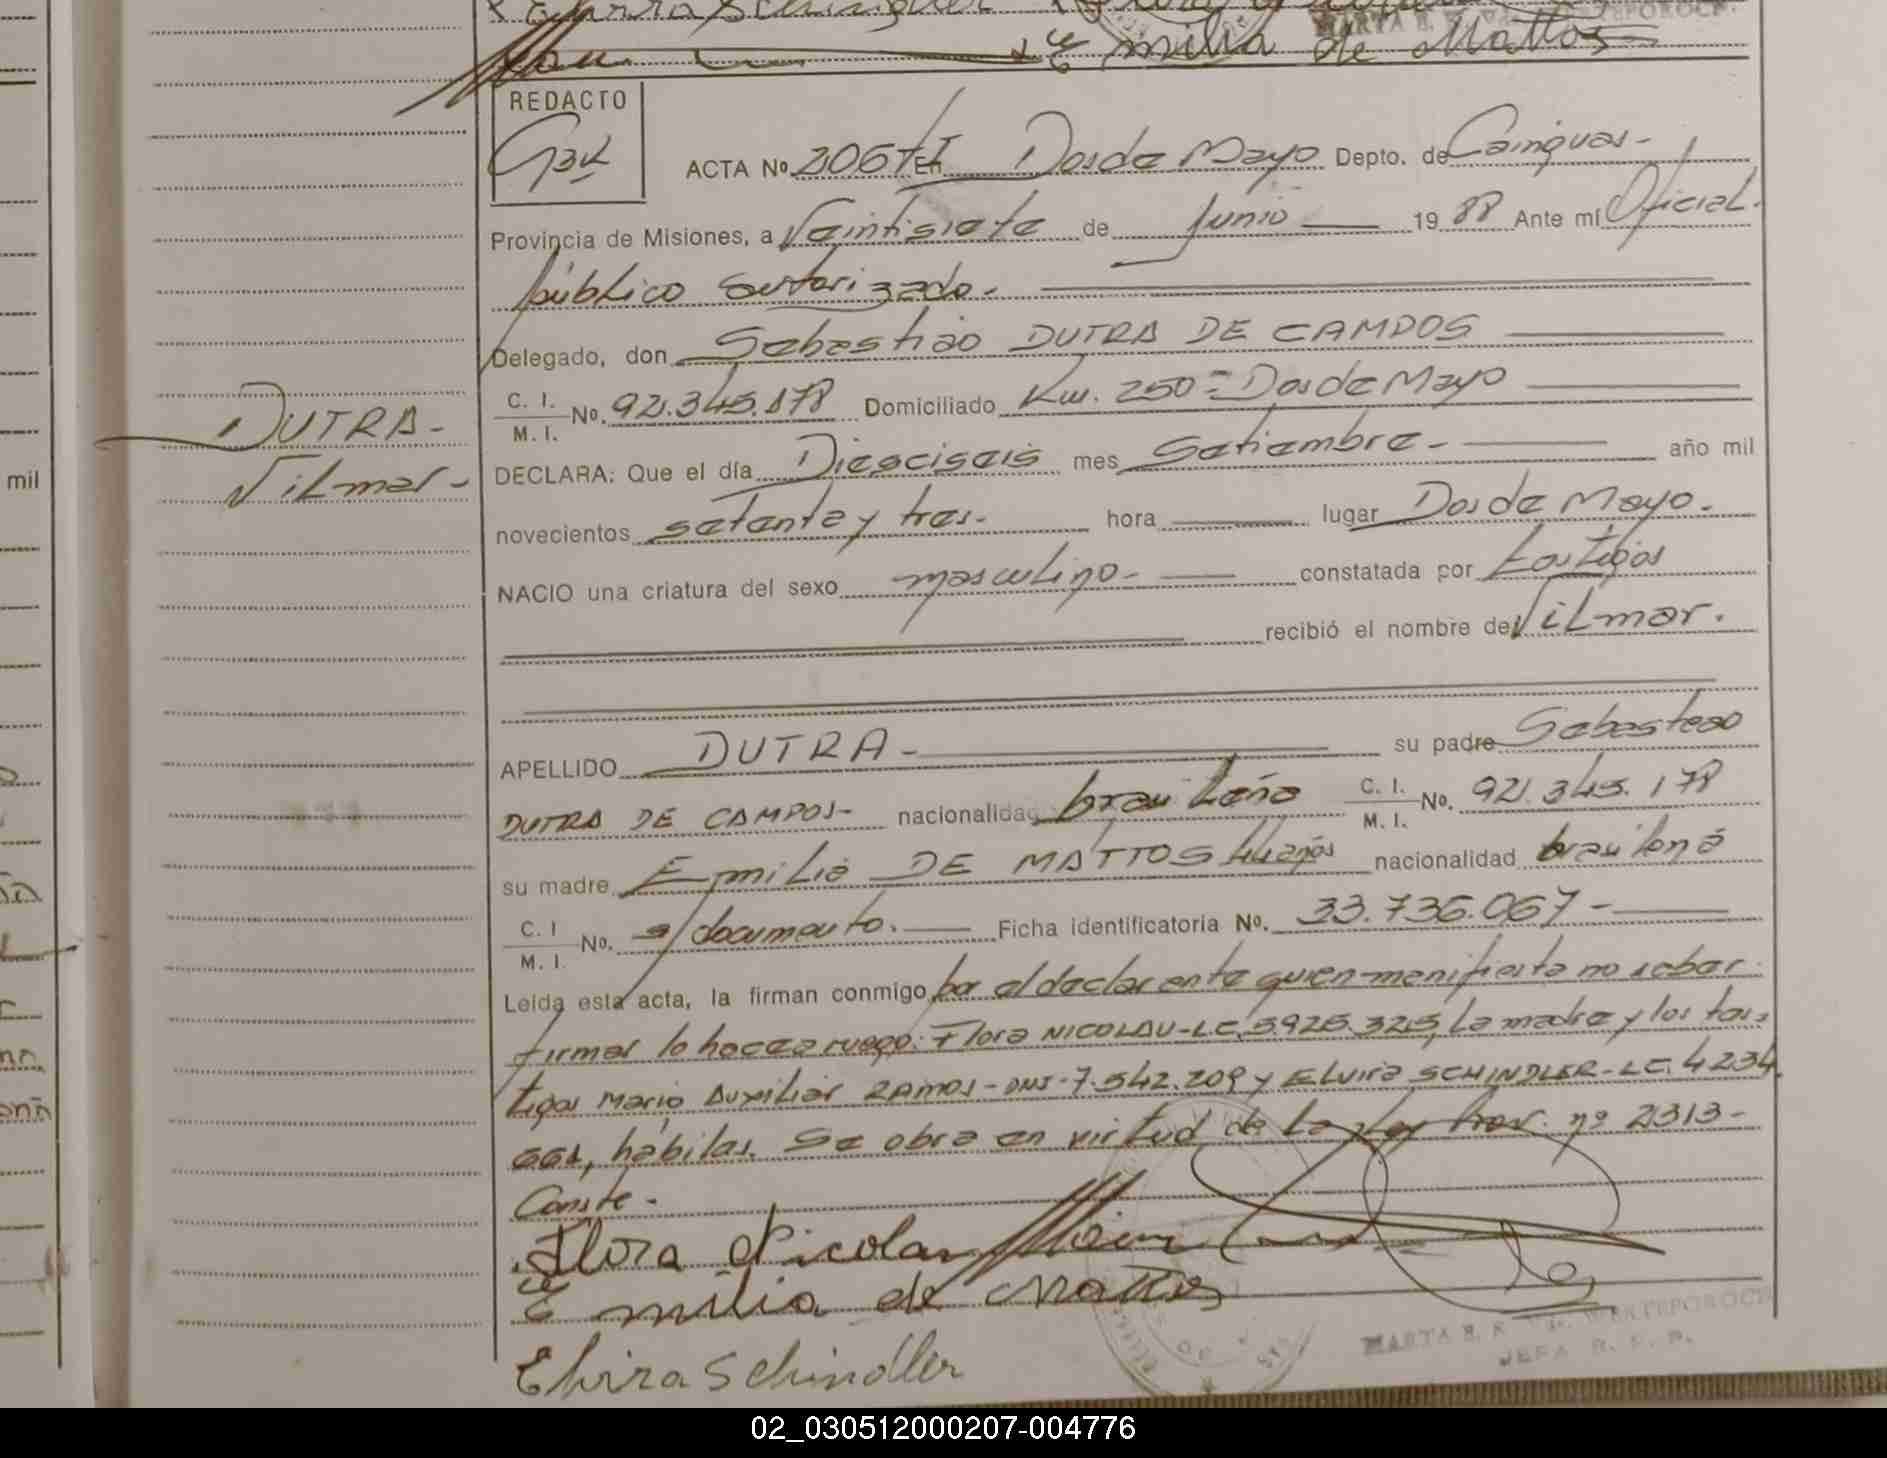 Emilia de Mattos
REDACTO
ACTA Nº 206 T I En Dos de Mayo Depto. de Cainguas-
Provincia de Misiones, a Veintisiete de Junio 19 88 Ante mí Oficial
público autorizado.
Delegado, don Sebastiao DUTRA DE CAMPOS
C. I. / M. I. Nº. 92.345.178 Domiciliado Km. 250 = Dos de Mayo
DUTRA-
DECLARA: Que el día Dieciseis mes Setiembre- año mil
mil
Vilmar-
novecientos setenta y tres- hora lugar Dos de Mayo.
NACIO una criatura del sexo masculino- constatada por testigos
recibió el nombre de Vilmar.
APELLIDO DUTRA- su padre Sebasteao
DUTRA DE CAMPOS- nacionalidad brasileña C. I. / M. I. Nº. 92.345.178
su madre Emilia DE MATTOS 44 años nacionalidad brasilena
C. I / M. I. Nº. s/documento. Ficha identificatoria Nº. 33.736.067-
Leída esta acta, la firman conmigo por el declarante quien manifiesta no saber
firmar lo hace a ruego: Flora NICOLAU-LC. 5.925.325, la madre y los tes-
tigos Mario Auxiliar RAMOS-DNI-7.542.209 y ELVIRA SCHINDLER-LC. 4234
hábiles. Se obra en virtud de la Ley Prov. nº 2313-
Conste-
Flora Nicolau
Emilia de Mattos
Elvira Schindler
MARTA E. K. WERTEPOROCH
JEFA R. P. P.
02_030512000207-004776